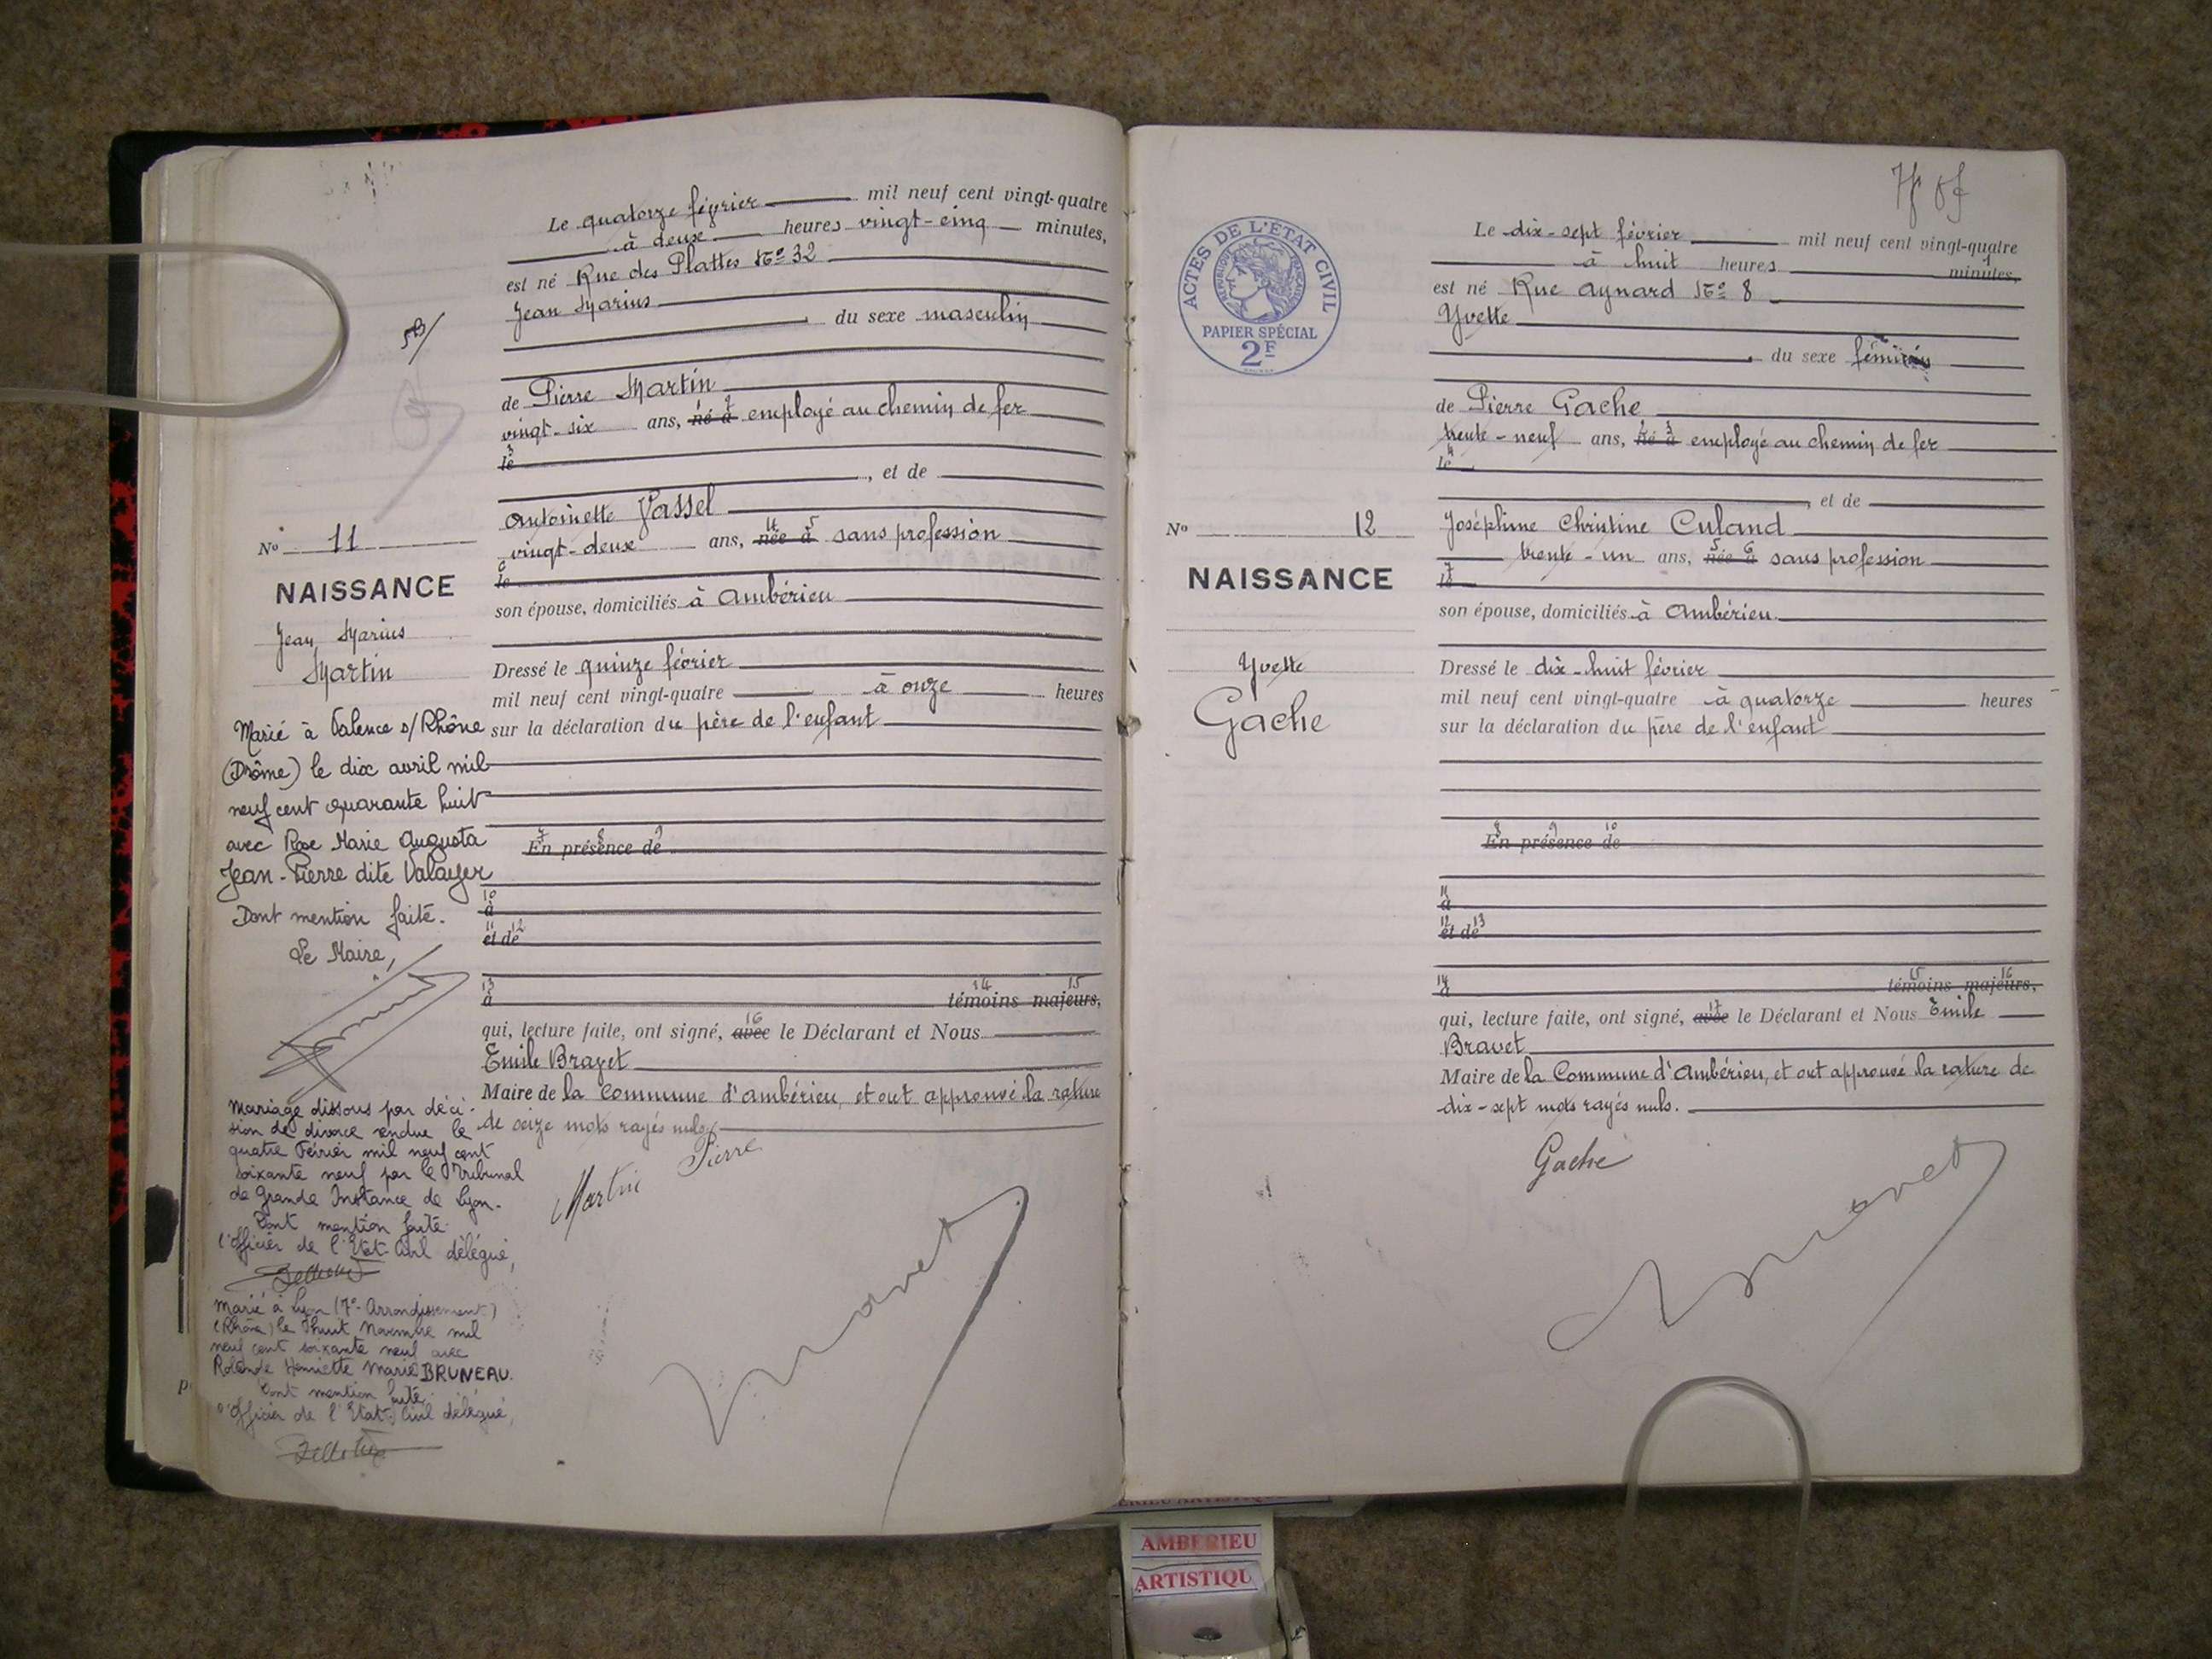 Le quatorze février mil neuf cent vingt-quatre
à deux heures vingt-cinq minutes,
est né Rue des Plattes No 32
Jean Marius
du sexe masculin
de Pierre Martin
vingt-six ans, né à employé au chemin de fer
le
, et de
Antoinette Vassel
vingt-deux ans, née à sans profession
le
son épouse, domiciliés à Ambérieu
Dressé le quinze février
mil neuf cent vingt-quatre à onze heures
sur la déclaration du père de l'enfant
En présence de
à
et de
à témoins majeurs,
qui, lecture faite, ont signé, avec le Déclarant et Nous
Emile Bravet
Maire de la Commune d'Ambérieu, et ont approuvé la rature
de seize mots rayés nuls.
Martin Pierre
Bravet
No 11
NAISSANCE
Jean Marius
Martin
Marié à Valence s/Rhône
(Drôme) le dix avril mil
neuf cent quarante huit
avec Rose Marie Augusta
Jean-Pierre dite Valayer
Dont mention faite.
Le Maire,
Mariage dissous par déci-
sion de divorce rendue le
quatre Février mil neuf cent
soixante neuf par le Tribunal
de Grande Instance de Lyon.
Dont mention faite
l'Officier de l'Etat-Civil délégué,
Marié à Lyon (7e Arrondissement)
(Rhône) le huit Novembre mil
neuf cent soixante neuf avec
Rolande Henriette Marie BRUNEAU.
Dont mention faite
l'Officier de l'Etat-Civil délégué,
ACTES DE L'ÉTAT CIVIL
RÉPUBLIQUE FRANÇAISE
PAPIER SPÉCIAL
2F
Le dix-sept février mil neuf cent vingt-quatre
à huit heures minutes,
est né Rue Aynard No 8
Yvette
du sexe féminin
de Pierre Gache
trente-neuf ans, né à employé au chemin de fer
le
, et de
Joséphine Christine Culand
trente-un ans, née à sans profession
le
son épouse, domiciliés à Ambérieu.
Dressé le dix-huit février
mil neuf cent vingt-quatre à quatorze heures
sur la déclaration du père de l'enfant
En présence de
à
et de
à témoins majeurs,
qui, lecture faite, ont signé, avec le Déclarant et Nous Emile
Bravet
Maire de la Commune d'Ambérieu, et ont approuvé la rature de
dix-sept mots rayés nuls.
Gache
Bravet
No 12
NAISSANCE
Yvette
Gache
AMBERIEU
ARTISTIQU